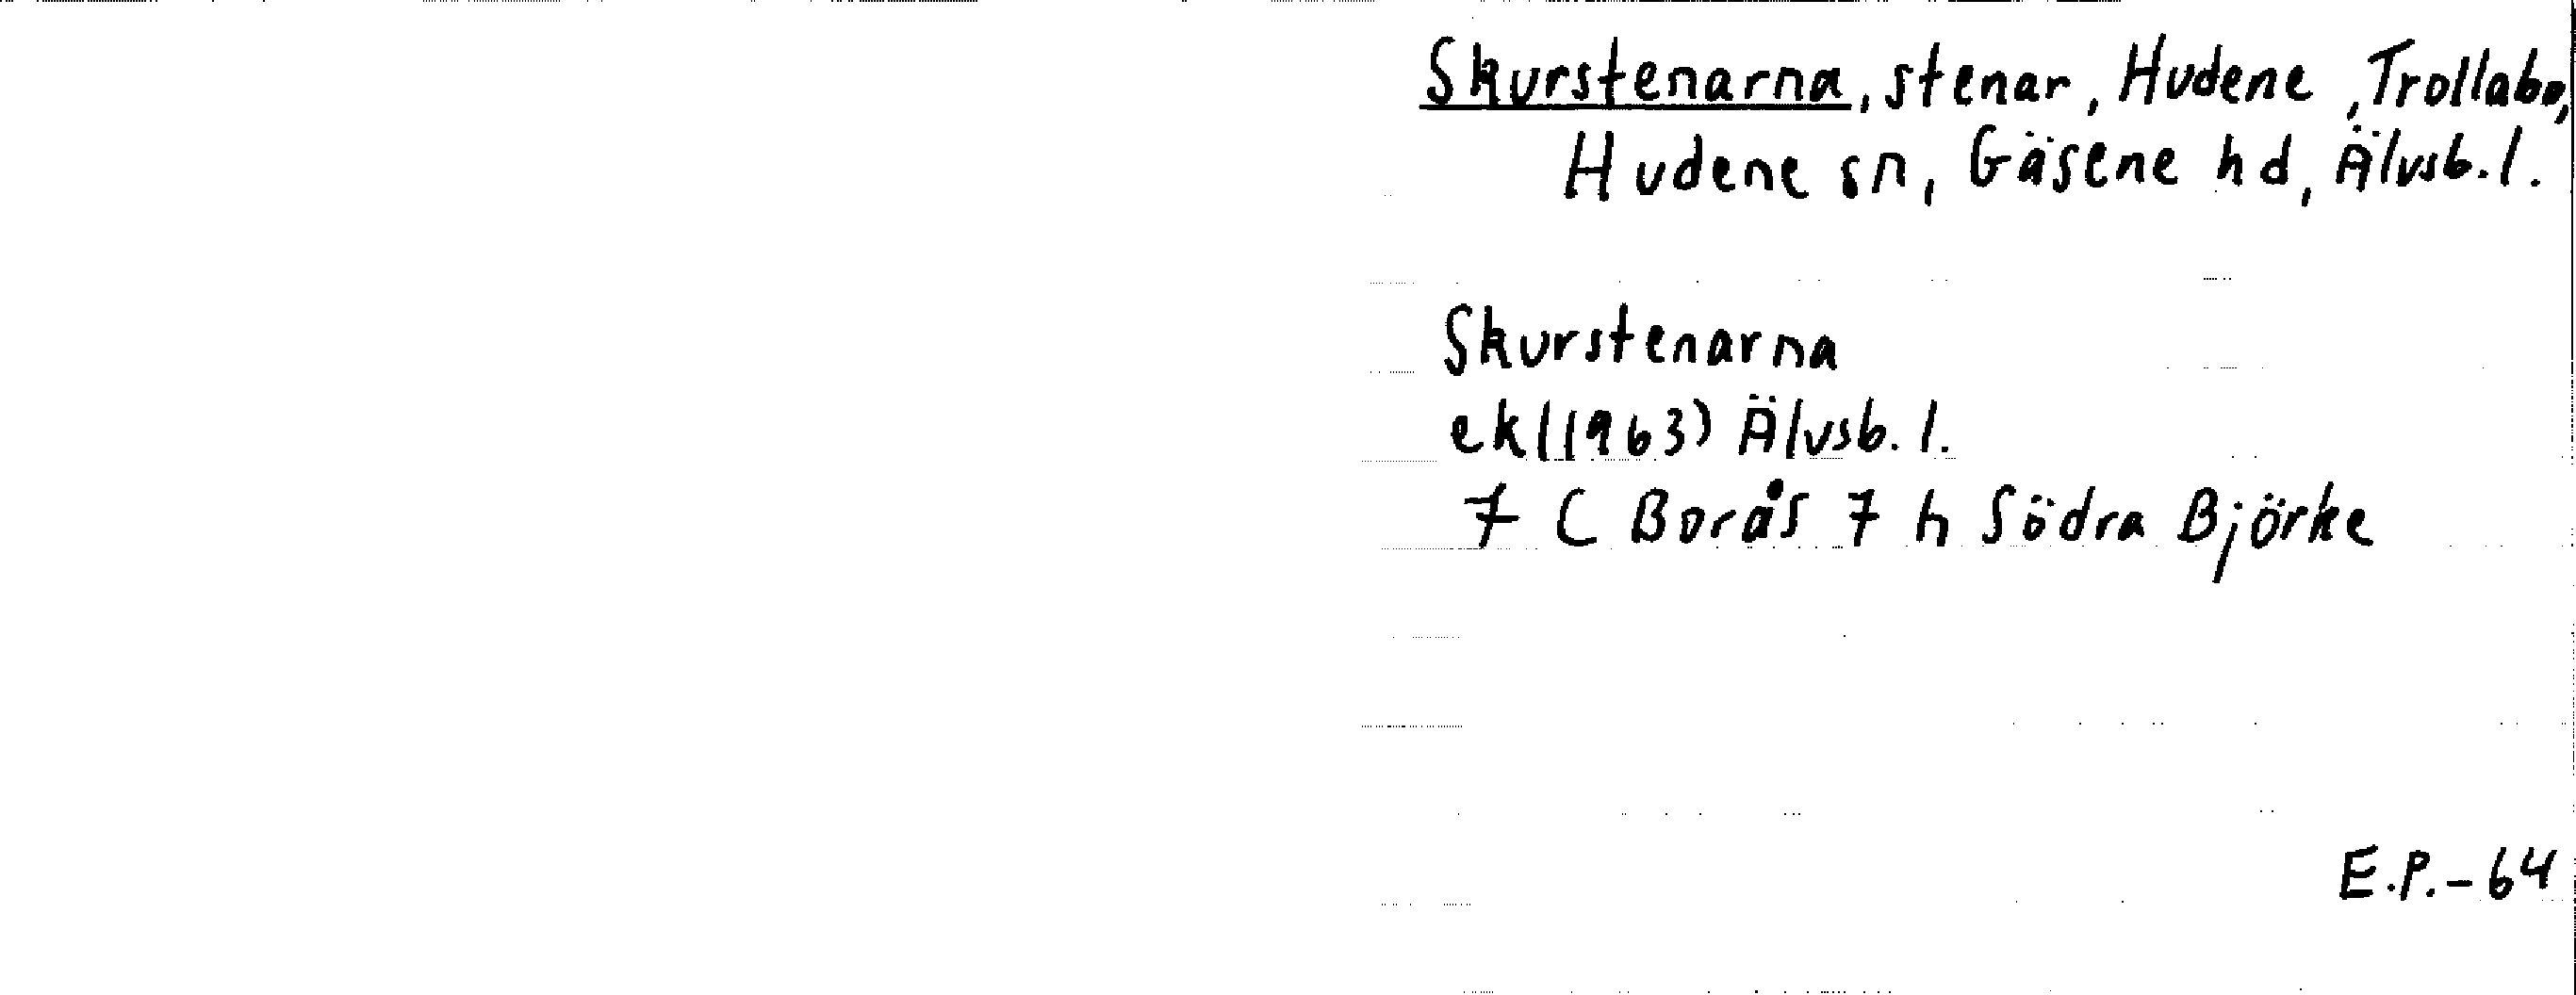 Skurstenarna, stenar, Hudene, Trollabo,
Hudene sn, Gäsene hd, Älvsb. l.
Skurstenarna
ek (1963) Älvsb. l.
7 C Borås 7 h Södra Björke
E.P.-64